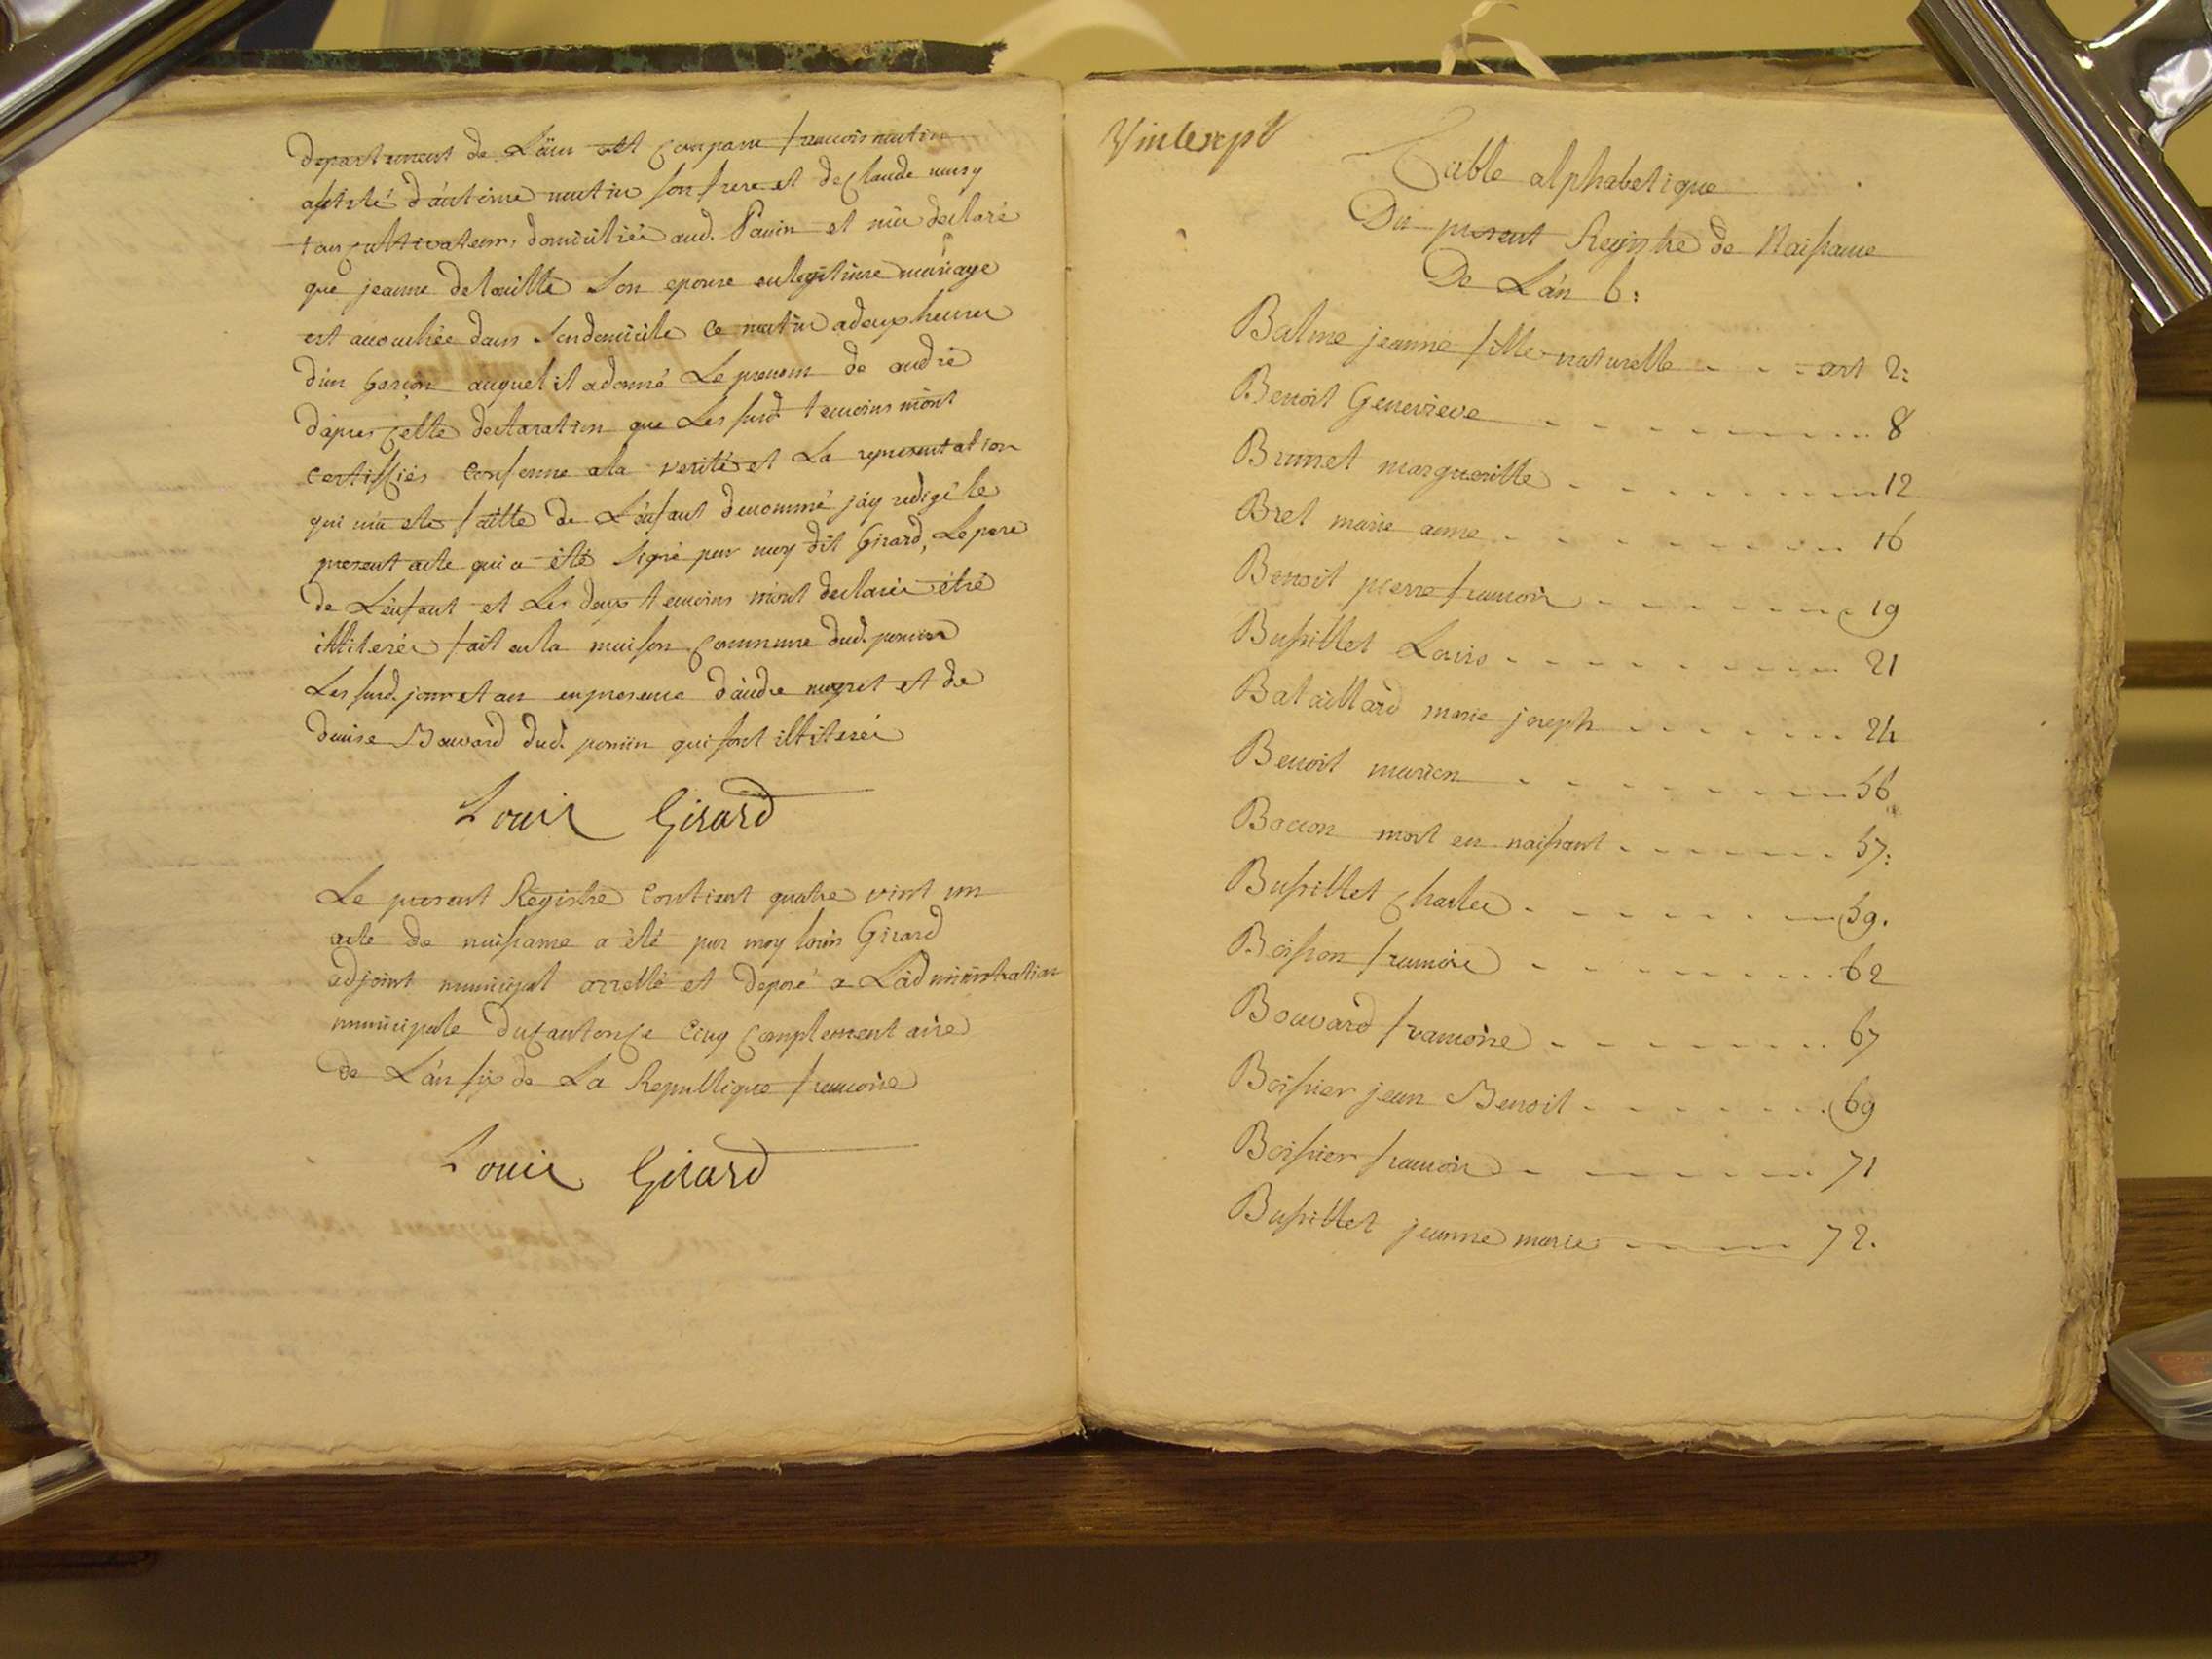 departement de L'ain est comparu francois mutin
assisté d'antoine mutin son frere et de claude mury
tous cultivateurs domiciliés aud. et m'a declaré
que jeanne son epouse en legitime mariage
est accouchée dans son domicile ce matin a deux heures
d'un garçon auquel il a donné Le prenom de andré
d'apres cette declaration que Les susd. temoins m'ont
certiffiés conforme a la verité et La representation
qui m'a eté faitte de L'enfant denommé j'ay redigé le
present acte qui a été signé par moy dit Girard, Le pere
de L'enfant et Les deux temoins m'ont declarés étre
illiterés fait en la maison commune dud.
Les susd. jour et an en presence d'andré et de
denise Bouvard dud. qui sont illiterés
Louis Girard
Le present Registre contient quatre vint un
acte de naissance a été par moy louis Girard
adjoint municipal arretté et deposé a L'administration
municipale du canton ce cinq complementaire
de L'an six de La Republique francoise
Louis Girard
Vintsept
Table alphabetique
Du present Registre de Naissance
De L'an 6:
Balme jeanne fille naturelle - - - art 2:
Benoit Genevieve - - - - - - - - 8
Brunet margueritte - - - - - - - - 12
Bret marie anne - - - - - - - - - 16
Benoit pierre francois - - - - - - - 19
Bussillet Louis - - - - - - - - - 21
Bataillard marie joseph - - - - - - 24
Benoit marion - - - - - - - - 56
Bocon mort en naissant - - - - - - 57:
Bussillet Charles - - - - - - - - 59.
Boisson francoise - - - - - - - - 62
Bouvard francoise - - - - - - - - 67
Boissier jean Benoit - - - - - - - 69
Boissier francois - - - - - - - - 71
Bussillet jeanne marie - - - - - 72.